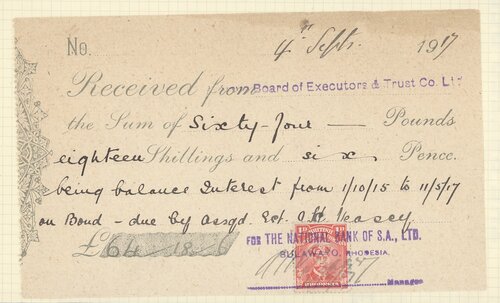 No. 4th Septr. 1917
Received from Board of Executors & Trust Co. Ltd
the Sum of Sixty-four — Pounds
eighteen Shillings and six Pence.
being balance Interest from 1/10/15 to 11/5/17
on Bond - due by Assgd. Est. Veasey
£64-18-6
FOR THE NATIONAL BANK OF S.A., LTD.
BULAWAYO, RHODESIA.
Manager